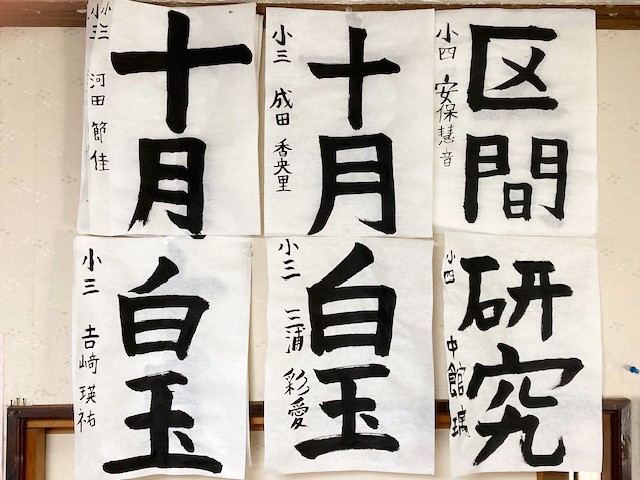 十月
小三 河田 節佳
十月
小三 成田 香央里
区間
小四 安保慧音
白玉
小三 吉崎 瑛祐
白玉
小二 三浦 彩愛
研究
小四 中館 璃